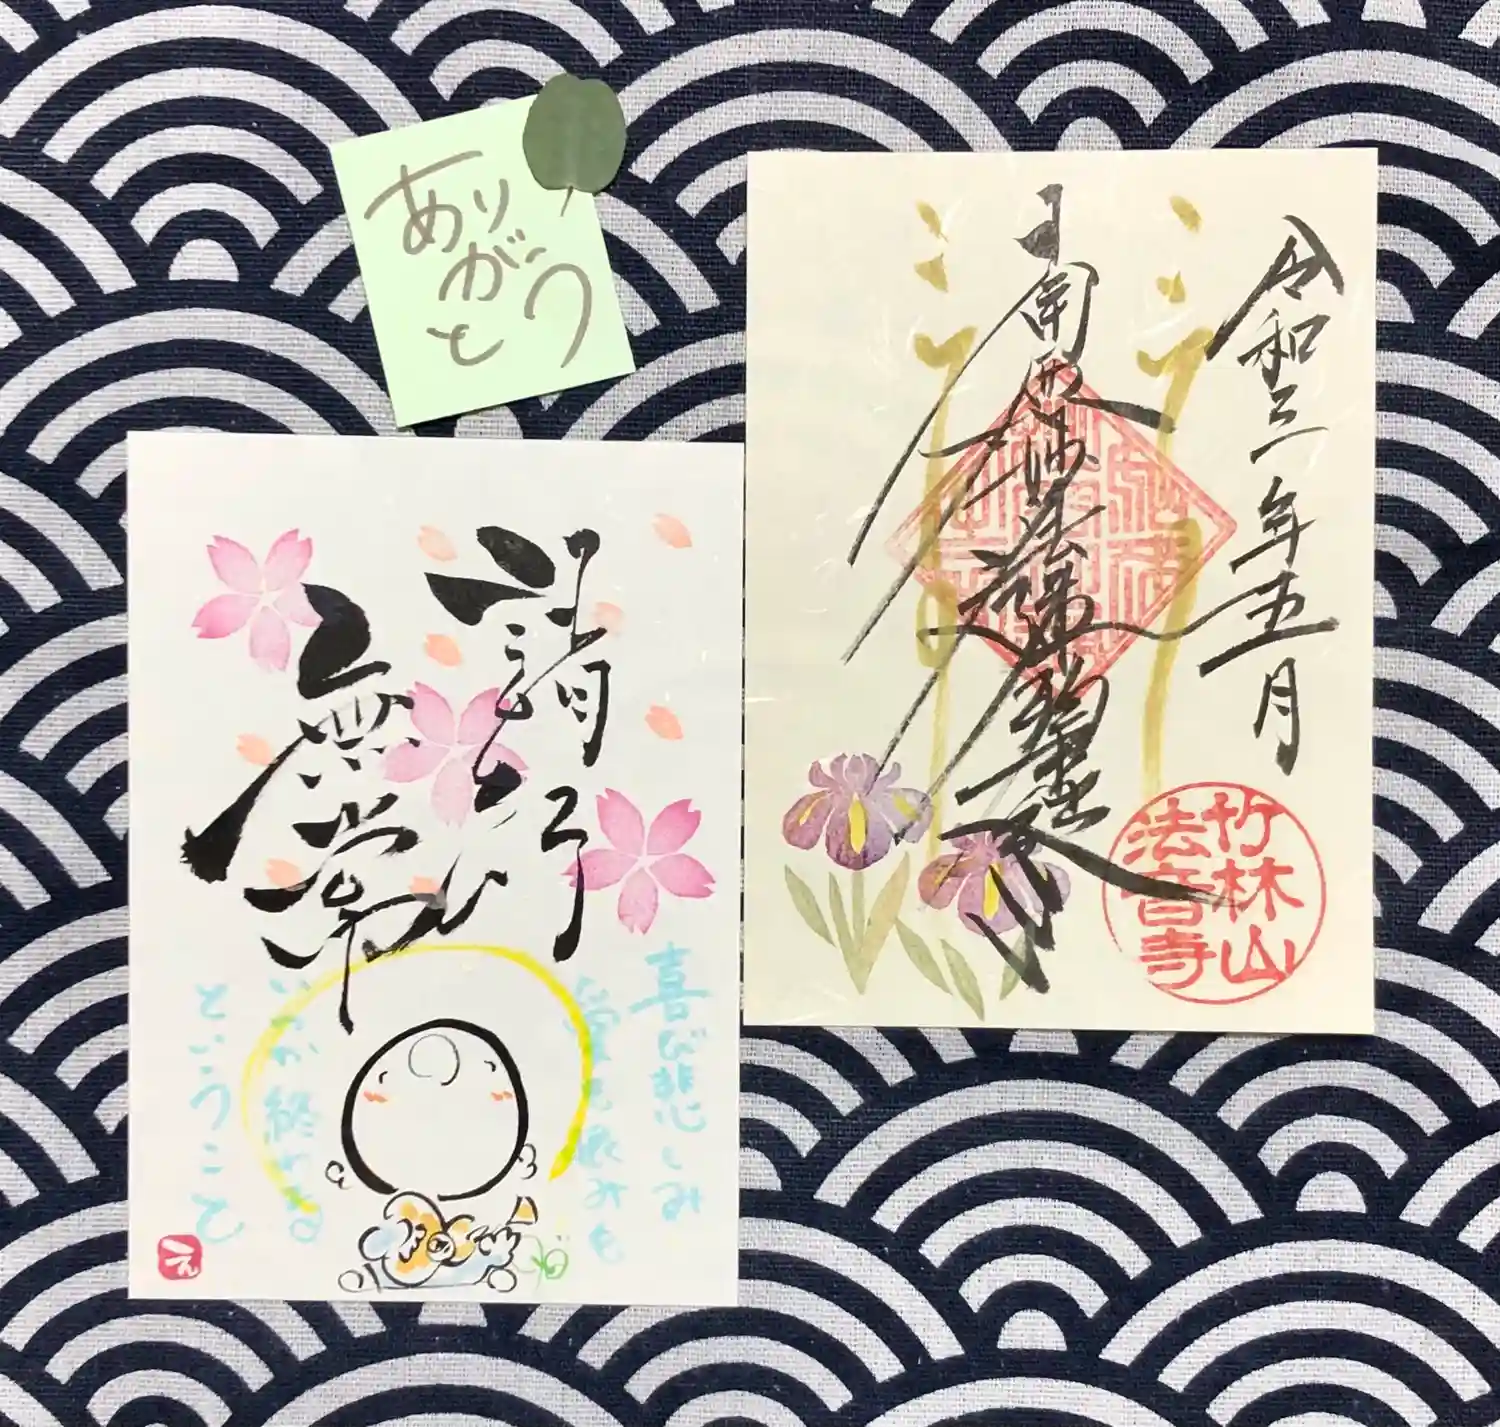 ありがとう
令和三年五月
南無妙法蓮華経
竹林山
法音寺
諸行
無常
喜び悲しみ
いつか終わる
ということ
えん